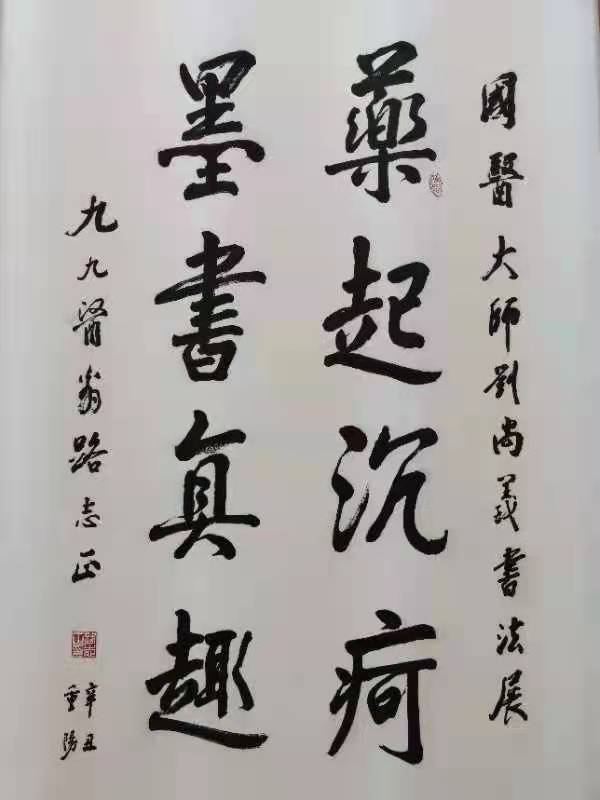 國醫大師劉尚義書法展
藥起沉疴
墨書真趣
九九醫翁路志正
辛丑
重陽